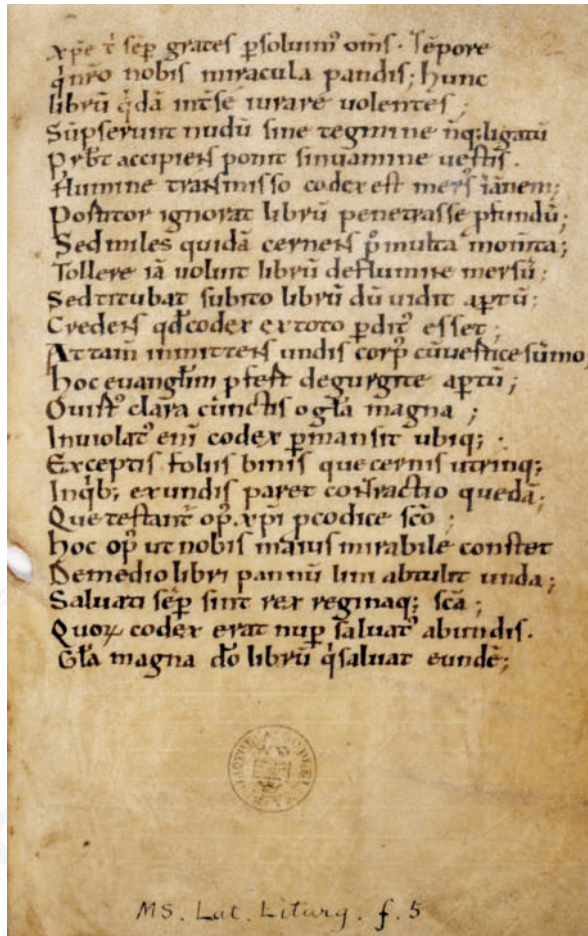 xp̄e t' sēp grates p̄soluim' om̄s. Tēpore
q' nr̄o nobis miracula pandis; hunc
librū q'dā int̄ se iurare uolentes;
Sūpserunt nudū sine tegmine n̄q; ligatū
Pr̄bt accipiens ponit sinuamine uestis.
Flumine transmisso codex est mers' ī
Portitor ignorat librū penetrasse p̄fundū;
Sed miles quidā cernens p' multa mom̄ta;
Tollere iā uoluit librū de flumine mersū;
Sed titubat subito librū dū uidit aptū;
Credens qđ codex ex toto p̄dit' esset;
At tam̄ inmittens undis corp' cū uertice sūmo,
hoc euangliū p̄fert de gurgite aptū;
O uirt' clara cūnctis o gl̄a magna;
Inuiolat' enī codex p̄mansit ubiq;
Exceptis foliis binis que cernis utrinq;
In qb; ex undis paret contractio quedā;
Que testant' op' xp̄i p codice sc̄o;
hoc op' ut nobis maius mirabile constet
De medio libri pannū lini abtulit unda;
Saluati sēp sint rex reginaq; sc̄a;
Quoꝝ codex erat nup saluat' ab undis.
Gl̄a magna dō librū q' saluat eundē;
MS. Lat. Liturg. f. 5